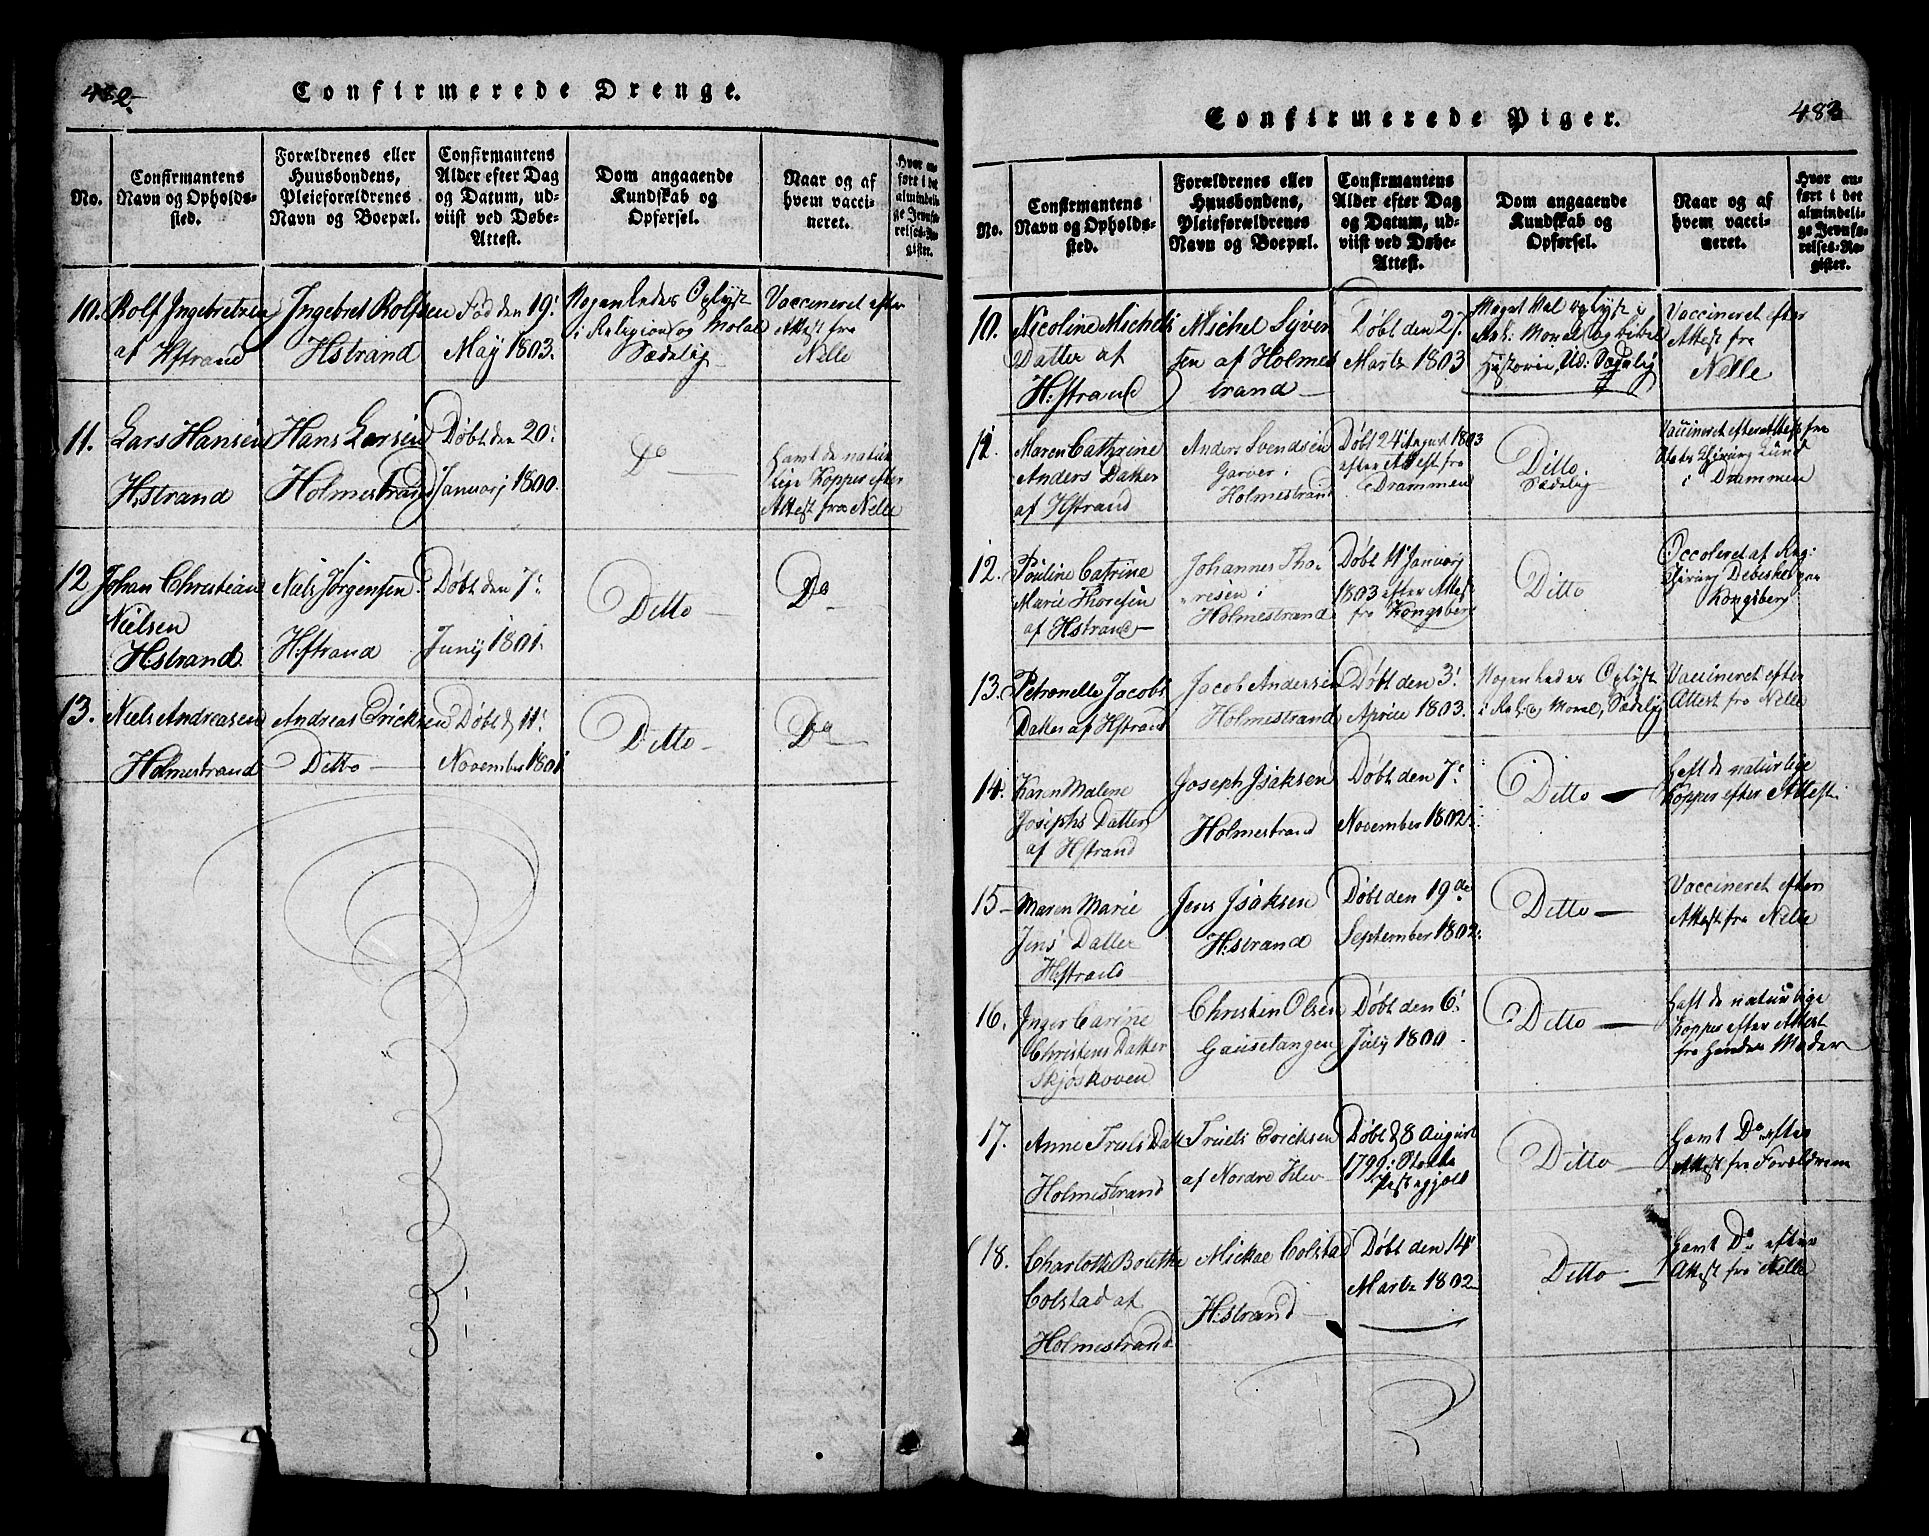 482
Confirmerede Drenge.
No.
Confirmantens
Navn og Opholds-
sted.
Forældrenes eller
Huusbondens,
Pleieforældrenes
Navn og Boepæl.
Confirmantens
Alder efter Dag
og Datum, ud-
viist ved Døbe-
Attest.
Dom angaaende
Kundskab og
Opførsel.
Naar og af
hvem vacci-
neret.
Hvor an-
ført i det
almindeli-
ge Jevnfø-
relses-Re-
gister.
10.
Rolf Ingebretzen
af Hstrand
Ingebret Rolfsen
Hstrand
Fød den 19:
May 1803.
Nogenledes Oplyst
i Religion og Moral
Sædelig
Vaccineret efter
Attest fra
Nelle
11.
Lars Hansen
H:strand
Hans Larsen
Holmestrand
Døbt den 20:
Januarj 1800.
Do
Hamt de natur
lige Kopper efter
Attest fra Nelle
12
Johan Christian
Nielsen
H:strand
Niels Jørgensen
H:strand
Døbt den 7:
Junij 1801.
Ditto
Do
13.
Niels Andreasen
Holmestrand
Andreas Ericksen
Ditto
Døbt d 11:
November 1801
Ditto
Do
483
Confirmerede Piger.
No.
Confirmantens
Navn og Opholds-
sted.
Forældrenes eller
Huusbondens,
Pleieforældrenes
Navn og Boepæl.
Confirmantens
Alder efter Dag
og Datum, ud-
viist ved Døbe-
Attest.
Dom angaaende
Kundskab og
Opførsel.
Naar og af
hvem vacci-
neret.
Hvor an-
ført i det
almindeli-
ge Jevnfø-
relses-Re-
gister.
10.
Nicoline Michels
Datter af
H:strand
Michel Syver
sen af Holmes
trand
Døbt den 27.
Marts 1803
Meget Vel oplyst i
Rel: Moral og bibel
Historie, Ud: Sædelig
Vaccineret efter
Attest fra
Nelle
11.
Maren Cathrine
Anders Datter
af Hstrand
Anders Svendsen
Garver i
Holmestrand
Døbt 24 August 1803
efter Attest fra
Drammen
Ditto.
Sædelig
Vaccineret efter Attest fra
Chirurg Lund
i Drammen
12.
Pouline Catrine
Marie Thoresen
af Hstrand
Johannes Tho-
resen i
Holmestrand
Døbt 4 Januarj
1803 efter Attest
fra Kongsberg
Ditto
Occoleret af Reg:
Chirurg
Kongsberg
13.
Petronelle Jacobs
Datter af Hstrand
Jacob Andersen
Holmestrand
Døbt den 3:
Aprill 1803.
Nogenledes Oplyst
i Rel: og Moral, Sædelig
Vaccineret efter
Attest fra Nelle
14.
Karen Malene
Josephs Datter
af Hstrand
Joseph Isaksen
Holmestrand
Døbt den 7:
November 1802:
Ditto
Haft de naturlige
Kopper efter Attest
15
Maren Marie
Jens' Datter
H:strand
Jens Isaksen
H:strand
Døbt den 19de
September 1802:
Ditto
Vaccineret efter
Attest fra Nelle
16.
Inger Carine
Christens Datter
Skjøskoven
Christen Olsen
Gauselangen
Døbt den 6:
July 1800
Ditto
Haft de naturlige
Kopper efter Attest
fra Hendes Moder
17.
Anne Truls Datt
Holmestrand
Truels Ericksen
af Nordre Klev
Døbt d 8 August
1799 i
Prestegjeld
Ditto
Hamt Do efter
Attest fra Forældrene
18.
Charlotte Bolethe
Colstad af
Holmestrand
Mickae Colstad
H:strand
Døbt den 14
Marts 1802
Ditto
Hamt Do efter
Attest fra Nelle